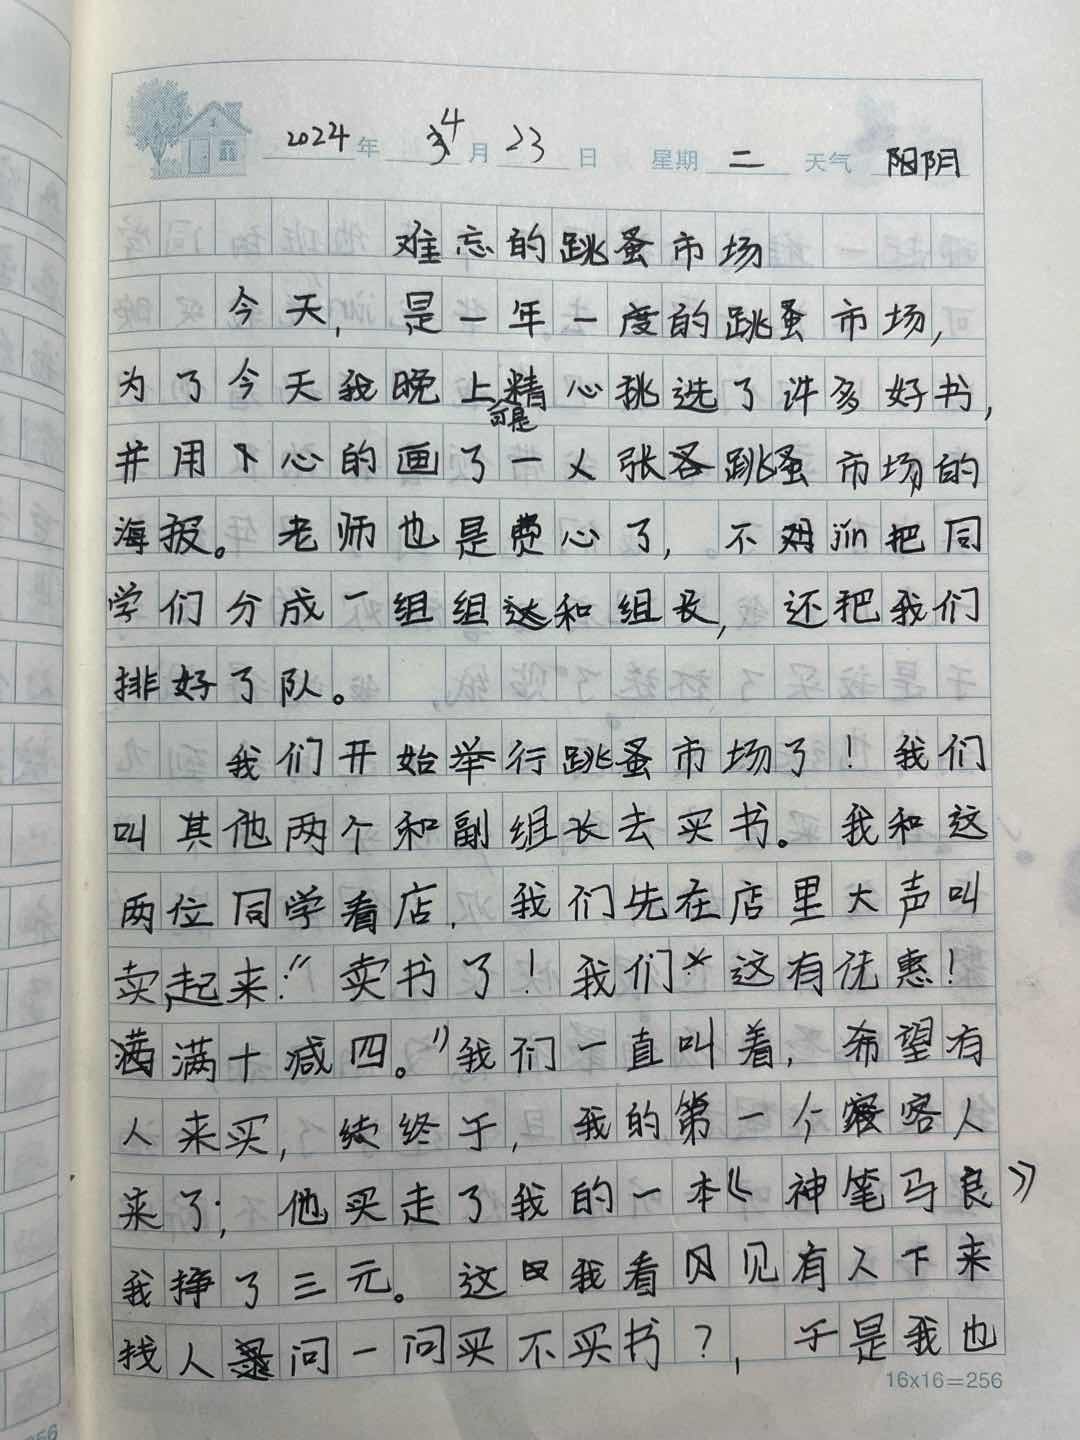 2024年 4月 23日 星期 二 天气 阴
难忘的跳蚤市场
今天，是一年一度的跳蚤市场，
为了今天我晚上精心挑选了许多好书，
可是
并用心的画了一张跳蚤市场的
海报。老师也是费心了，不jǐn把同
学们分成一组组和组长，还把我们
排好了队。
我们开始举行跳蚤市场了！我们
叫其他两个和副组长去买书。我和这
两位同学看店，我们先在店里大声叫
卖起来：“卖书了！我们这有优惠！
满十减四。”我们一直叫着，希望有
人来买，终于，我的第一个客人
来了；他买走了我的一本《神笔马良》
我挣了三元。这我看见有人下来
找人问一问买不买书？，于是我也
16x16=256
256